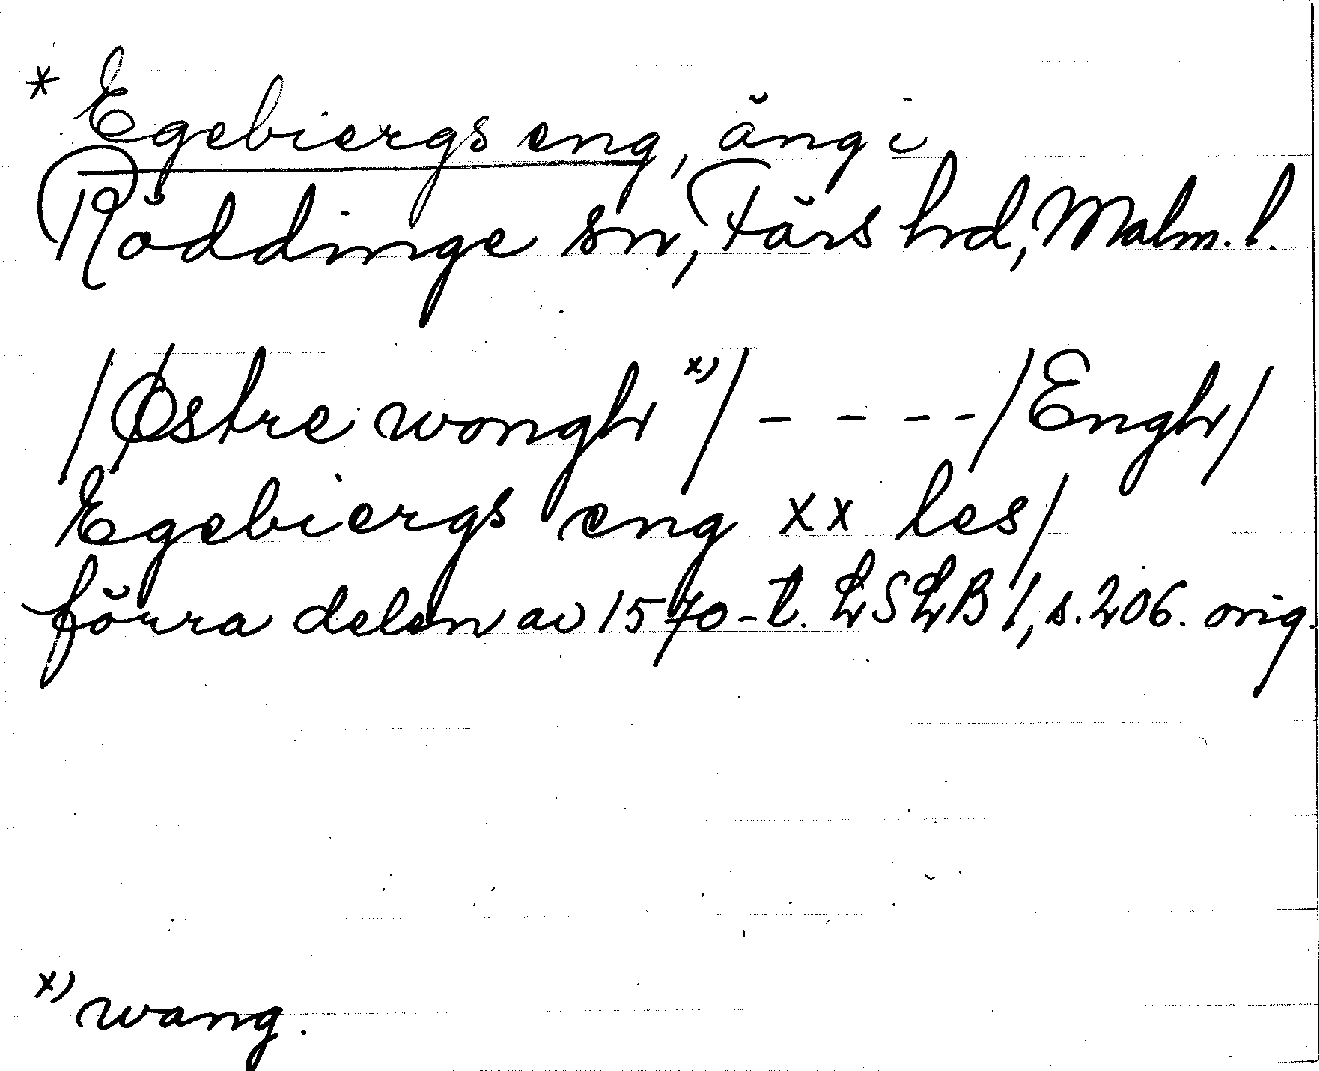 * Egebiergs eng, äng i
Röddinge sn, Färs hd, Malm. l.
/Østre wongh x)/ - - - - /Engh/
Egebiergs eng xx les/
förra delen av 1570-t. LSLB 1, s. 206. orig.
x) wang.